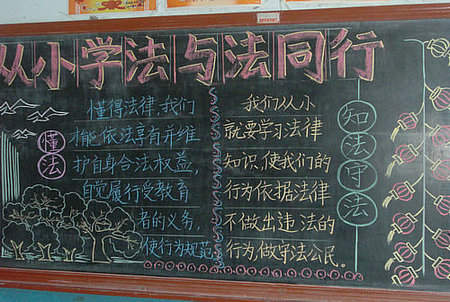 从小学法与法同行
懂法
懂得法律,我们
才能依法享有并维
护自身合法权益,
自觉履行受教育
者的义务,
使行为规范
我们从小
就要学习法律
知识,使我们的
行为依据法律
不做出违法的
行为,做守法公民。
知法守法